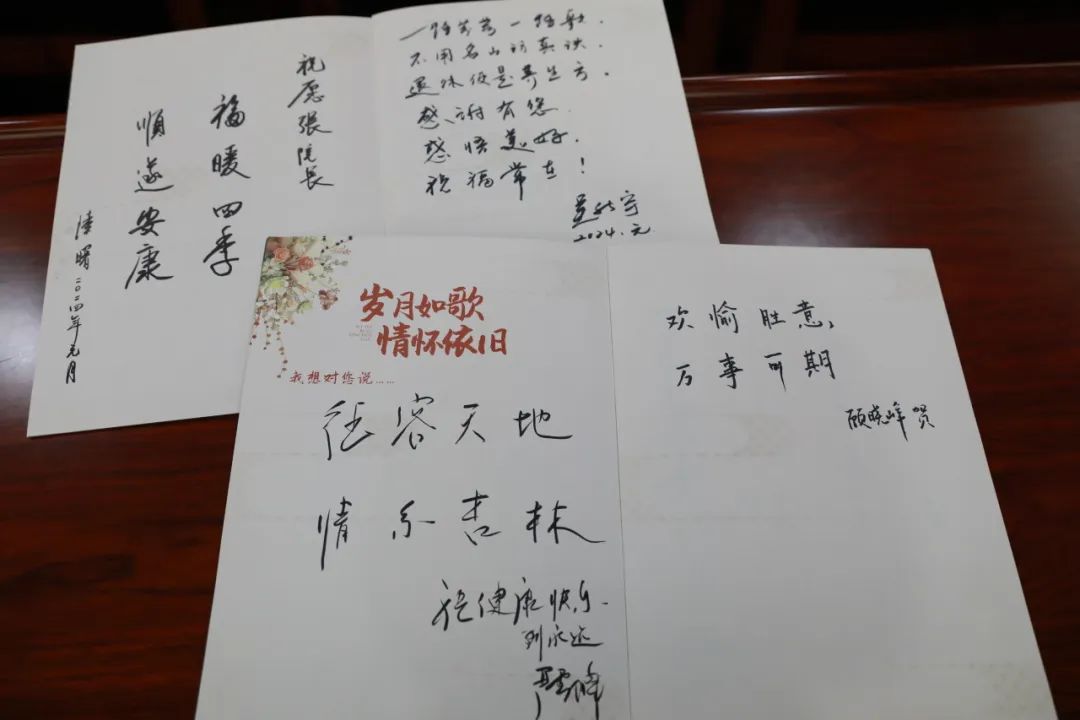 祝愿張院长
福暖四季
順遂安康
陆曙二〇二四年元月
一路芬芳一路歌.
不用名山访真诀.
退休便是养生方.
感谢有您
感悟美好.
祝福常在!
2024.元
岁月如歌
情怀依旧
我想对您说……
征客天地
情系杏林
祝健康快乐.
到永远
欢愉胜意,
万事可期
顾晓峰贺